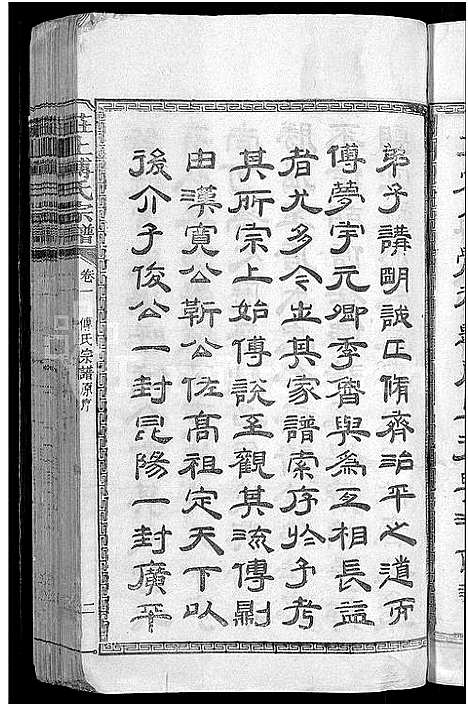 弟子講明誠正脩齊治平之道而
傅夢宇元卿季膺與為互相長益
者尤多今出其家譜索序於予考
其所宗上始傅說至觀其流傳剔
由漢寬公靳公佐高祖定天下以
後介子俊公一封昆陽一封廣平
莊上傅氏宗譜
卷一
傅氏宗譜原序
二